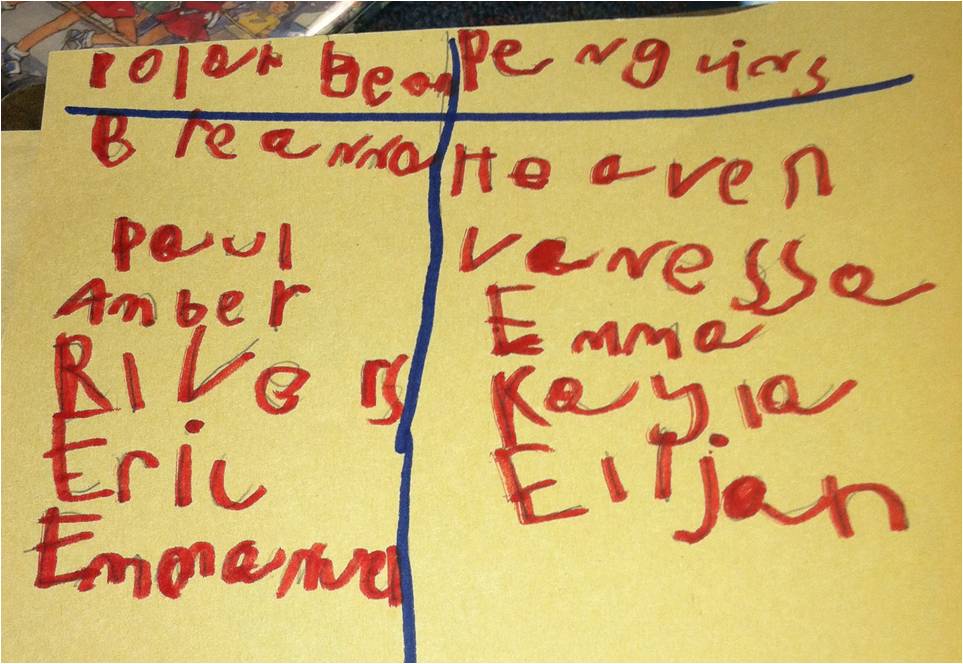 Polar Bear Penguins
Breanna Heaven
Paul Vanessa
Amber Emma
Rivers Kayla
Eric Elijah
Emmanuel